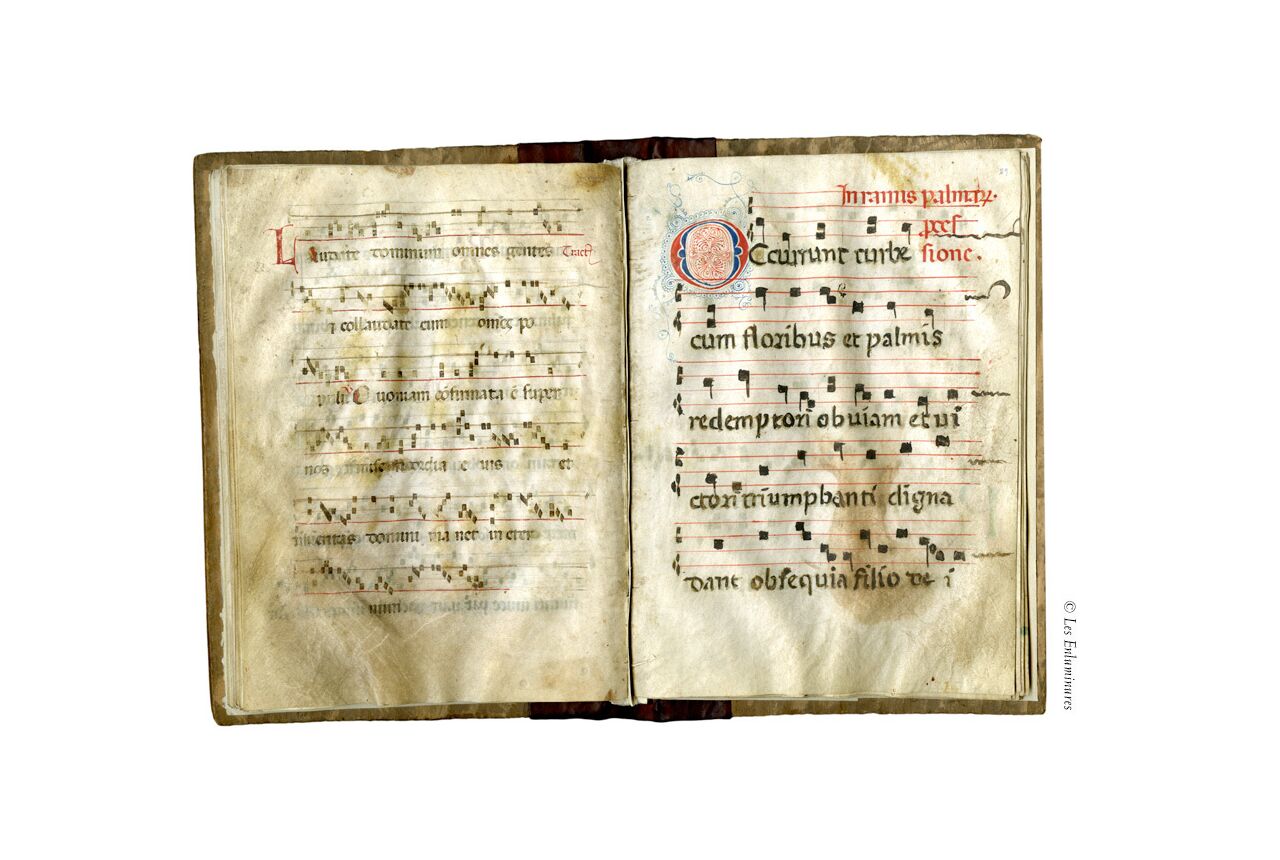 Laudate dominum omnes gentes Tract
et collaudate eum omnes po
puli Quoniam cōfirmata ē super
nos misericordia eius et
veritas domini ma net in eter
In ramis palmaꝝ.
Occurrunt turbe
cum floribus et palmis
redemptori obviam et vi
ctori triumphanti digna
dant obsequia filio de i
© Les Enluminures